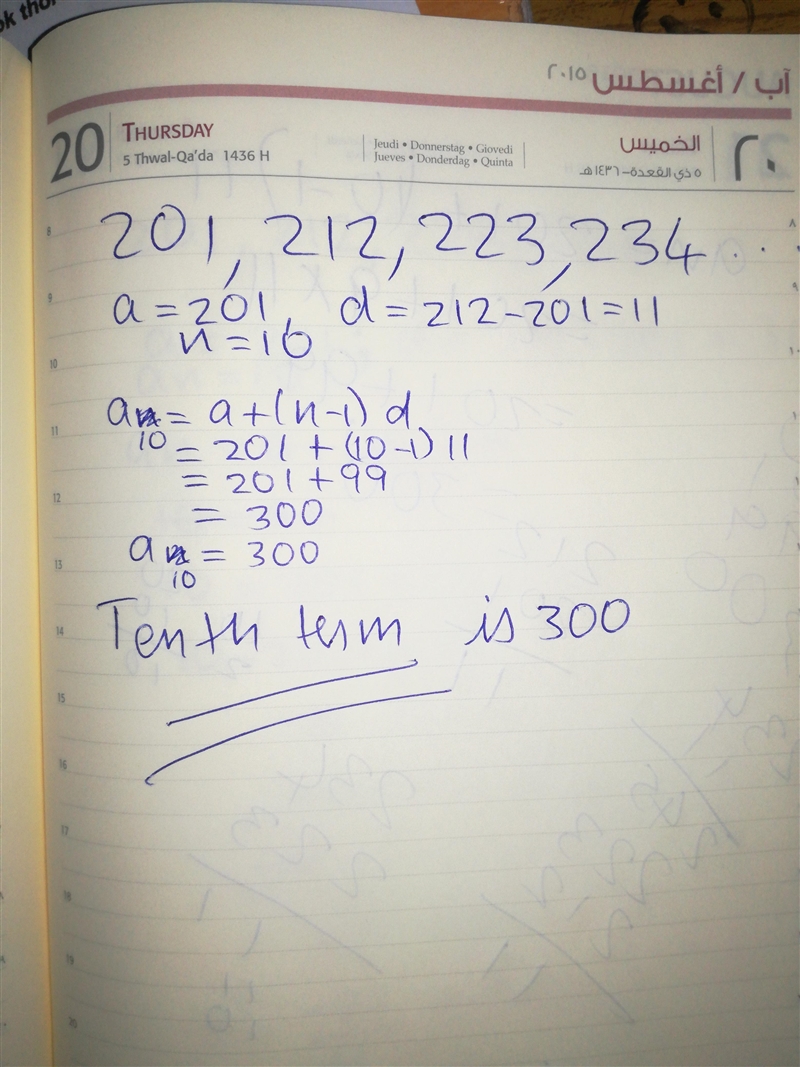 ok tho
آب / أغسطس ٢٠١٥
20 THURSDAY
5 Thwal-Qa'da 1436 H
Jeudi • Donnerstag • Giovedi
Jueves • Donderdag • Quinta
الخميس ٢٠
٥ ذي القعدة - ١٤٣٦ هـ
8 201, 212, 223, 234 . . ٨
9 a = 201, d = 212 - 201 = 11 ٩
n = 10
10 ١٠
11 an = a + (n-1) d ١١
10 = 201 + (10-1) 11
12 = 201 + 99
= 300
13 an = 300
10
14 Tenth term is 300
15
16
17
18
19
20